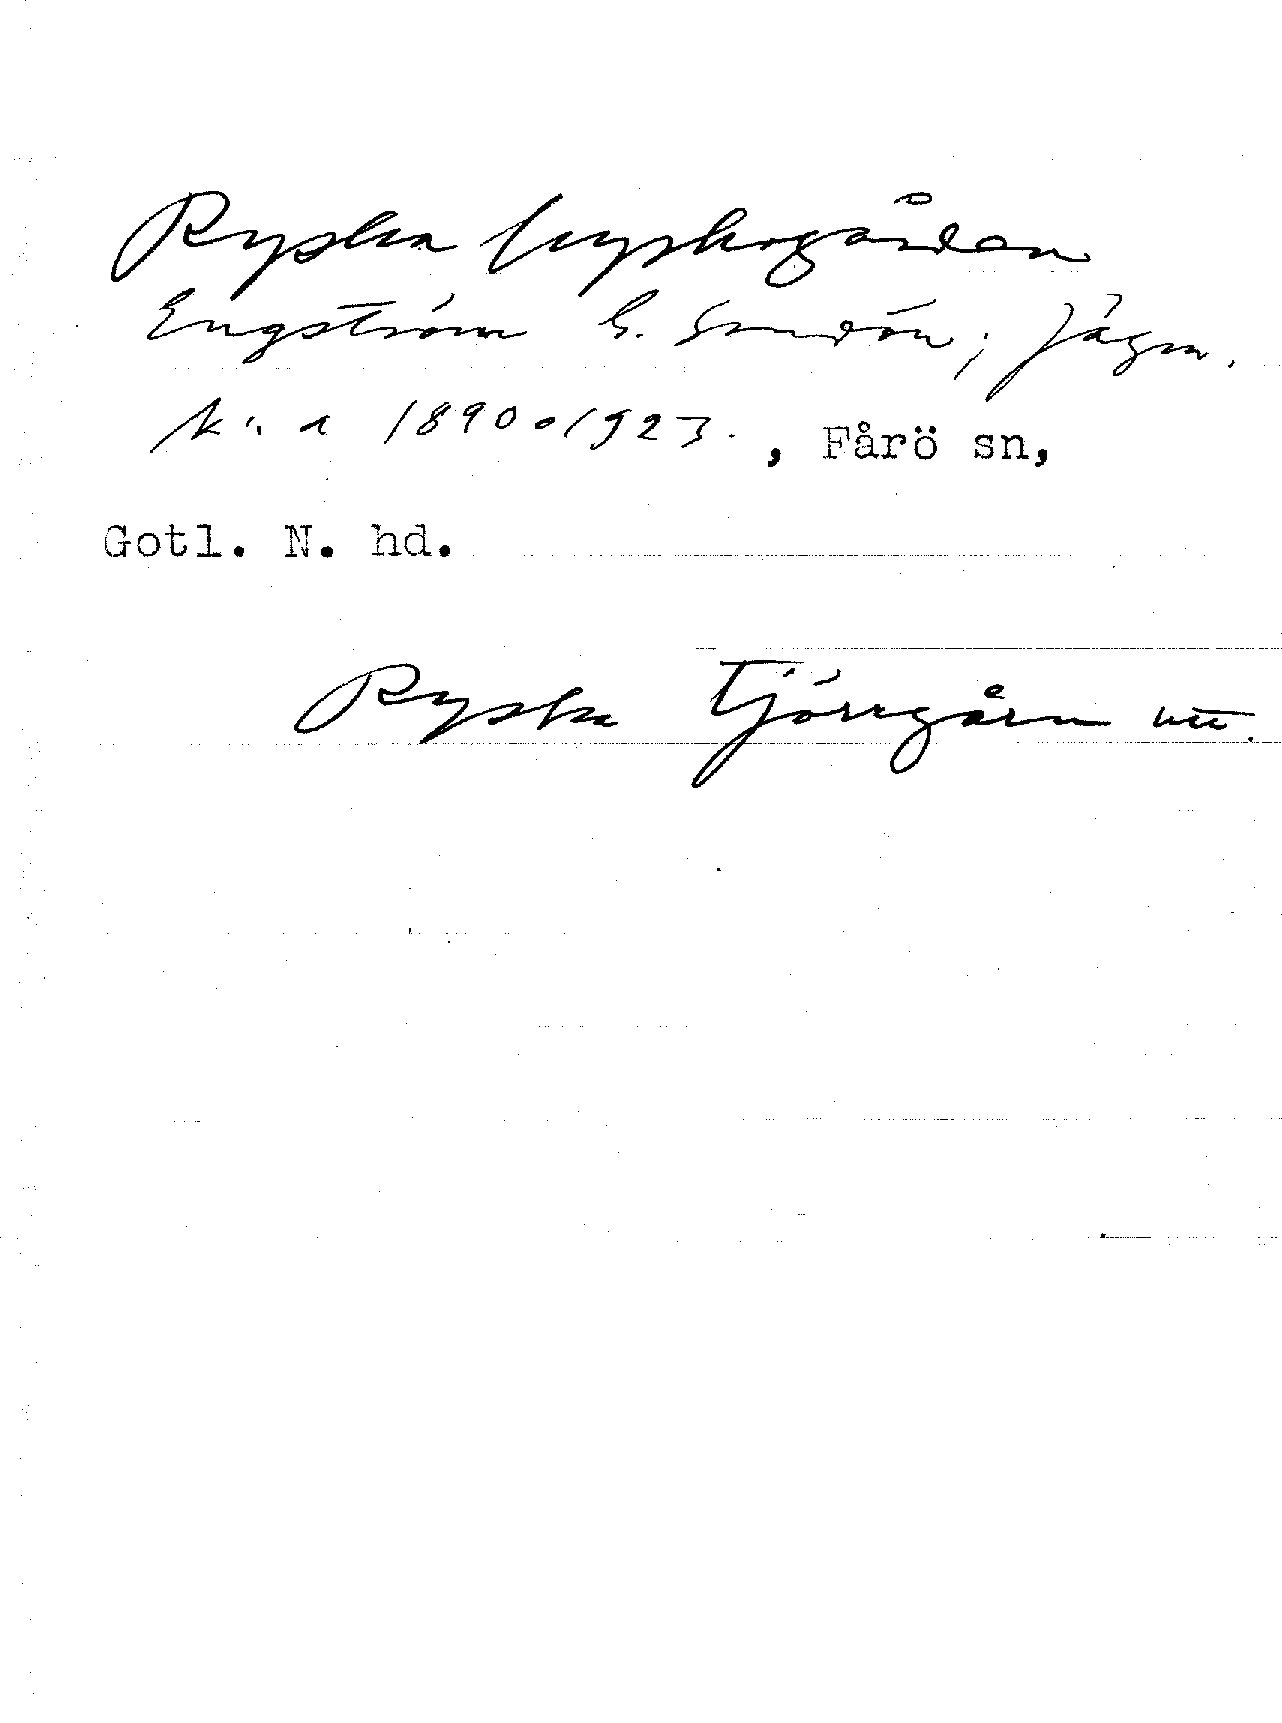 Ryska kyrkogården
Engström G. Sandön, Jägm.
k:a 1890 o 1923. , Fårö sn,
Gotl. N. hd.
Ryska tjörrgårn utt.